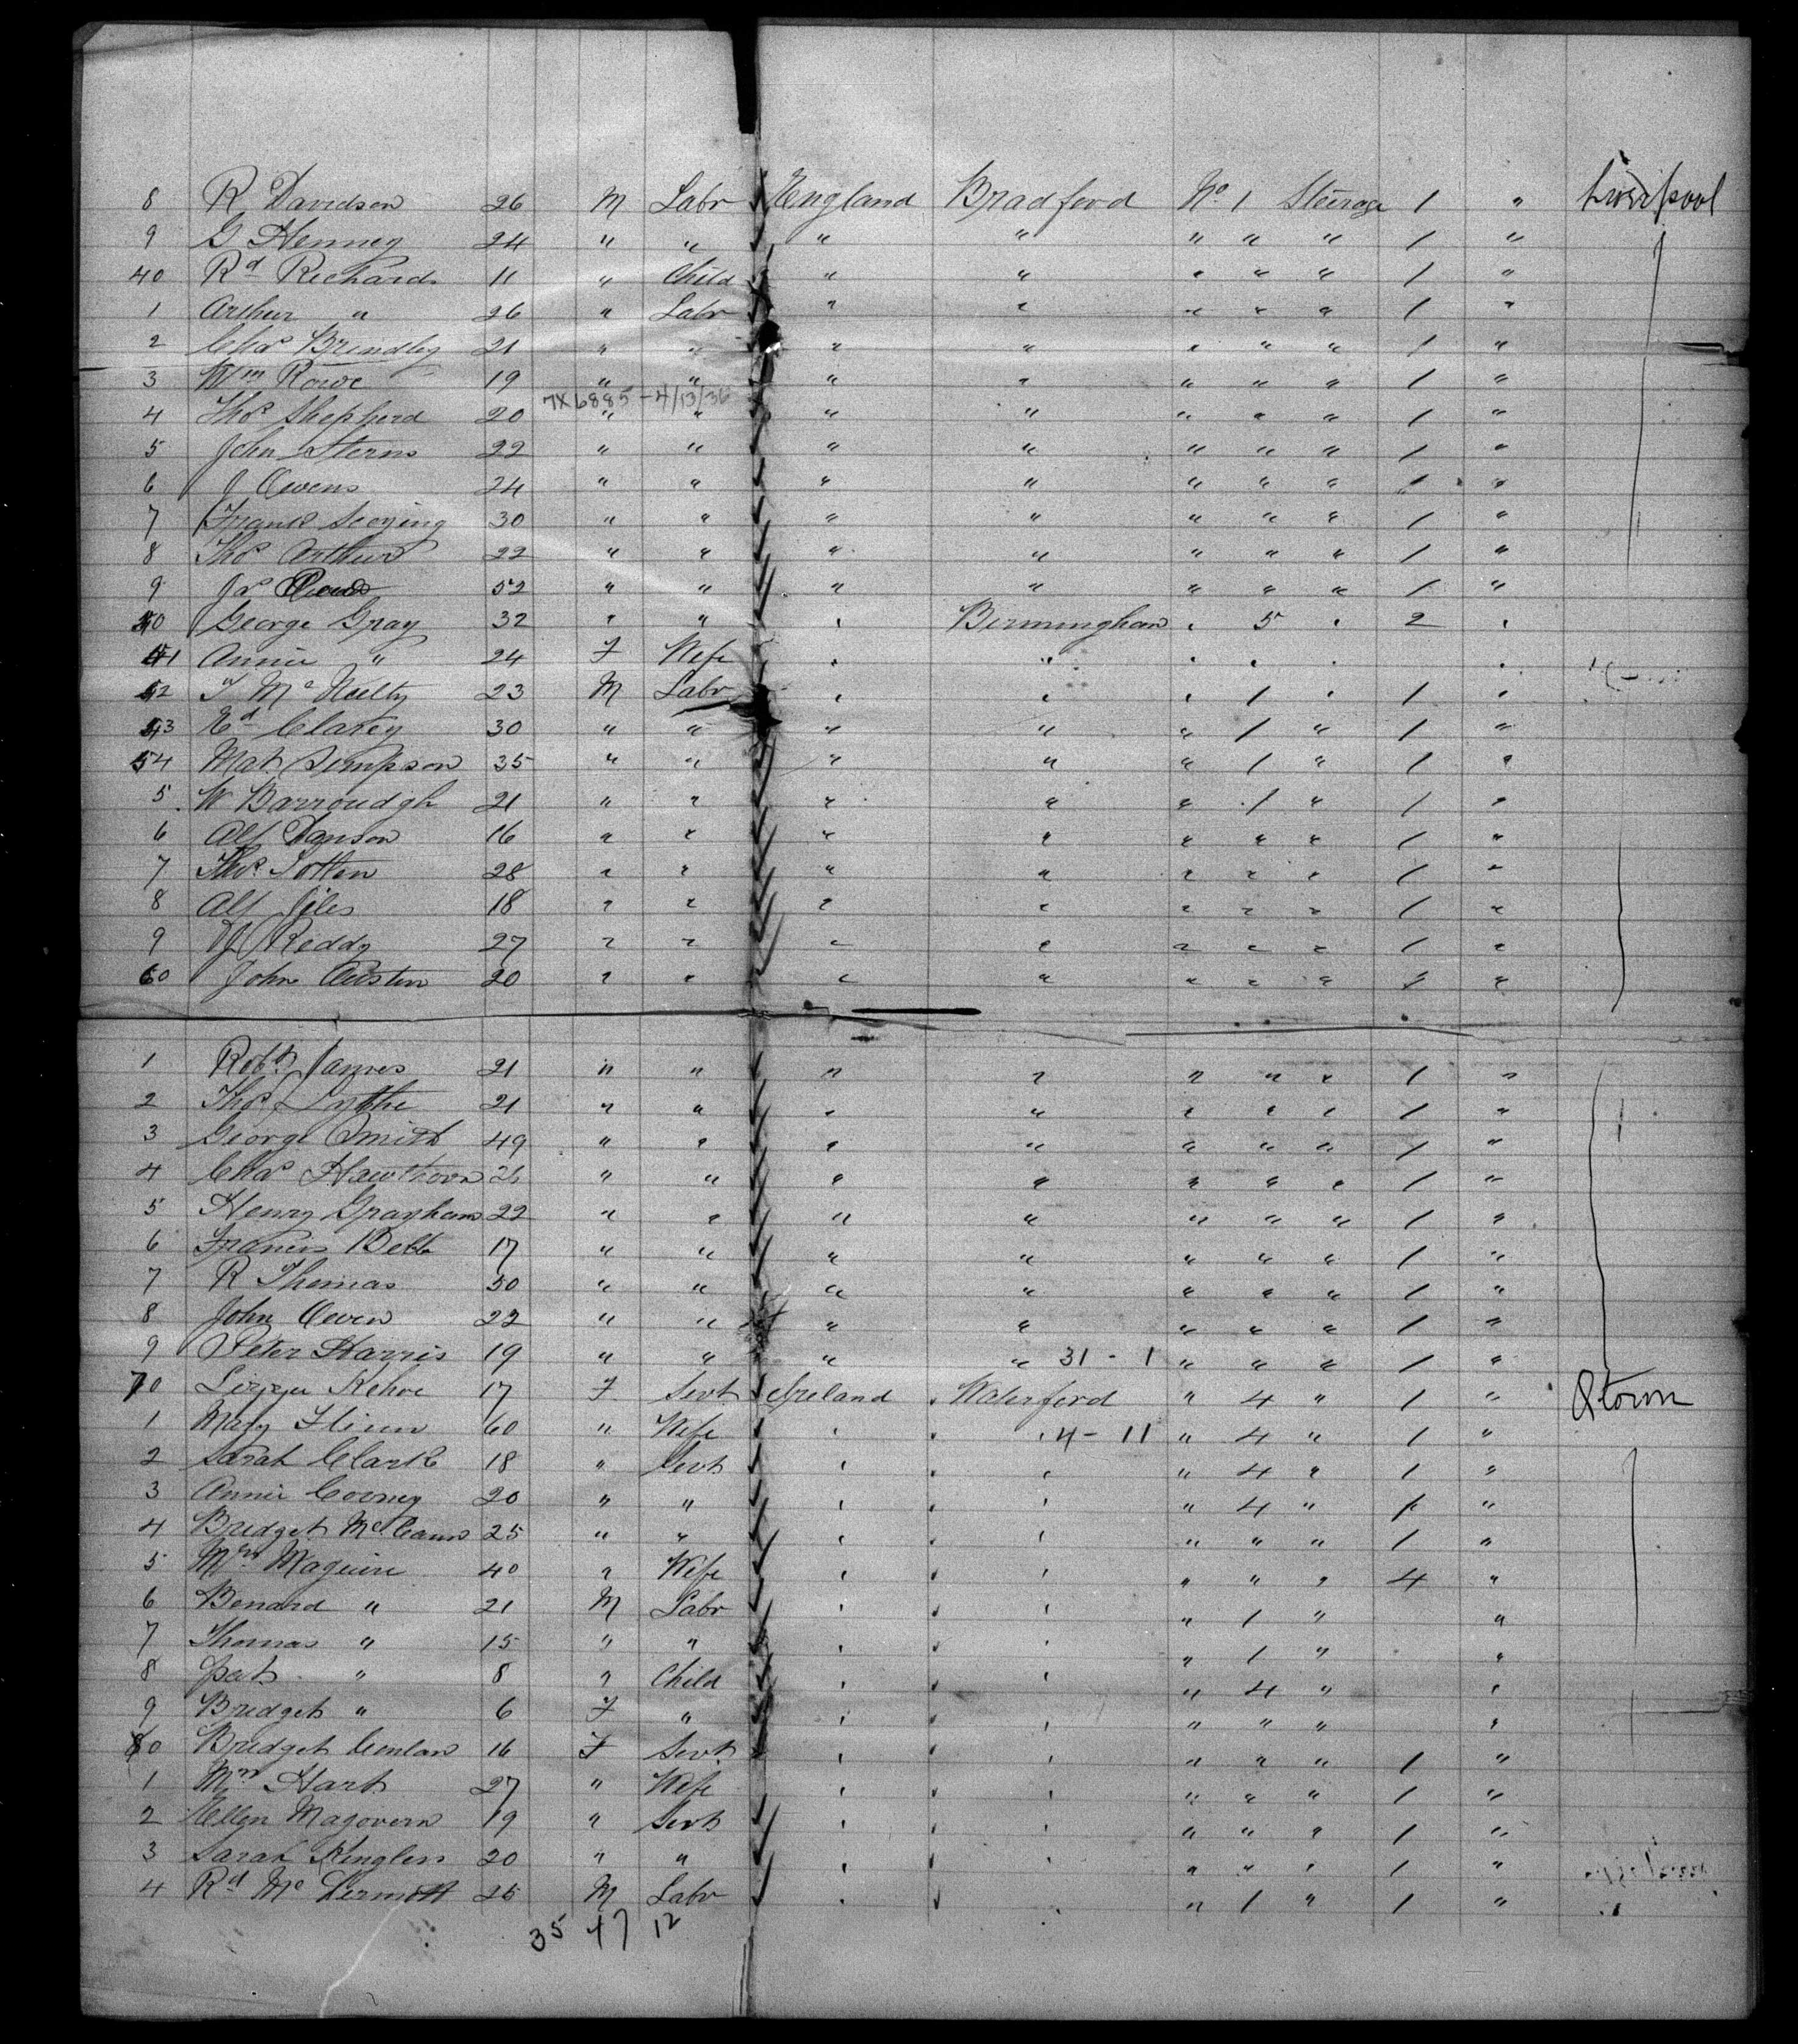 8 R Davidson 26 M Labr England Bradford No 1 Steirage 1 " Liverpool
9 G Henney 24 " " " " " " " 1 "
40 Rd Richards 11 " Child " " " " " 1 "
1 Arthur " 26 " Labr " " " " " 1 "
2 Chas Brindley 21 " " " " " " " 1 "
3 Wm Rowe 19 " " " " " " " 1 "
7X6885 - 4/13/36
4 Thos Shepherd 20 " " " " " " " 1 "
5 John Sterns 22 " " " " " " " 1 "
6 J Owens 24 " " " " " " " " "
7 Frank 30 " " " " " " " 1 "
8 Thos Arthur 22 " " " " " " " 1 "
9 Js 52 " " " " " " " 1 "
50 George Gray 32 " " " Birmingham " 5 " 2 "
51 Annie " 24 F Wife " " " " " "
52 T Mc Neelty 23 M Labr " " " 1 " 1 "
53 Ed Clarey 30 " " " " " 1 " 1 "
54 Mat Simpson 35 " " " " " 1 " 1 "
5 W Barroudgh 21 " " " " " 1 " 1 "
6 Alf Danson 16 " " " " " " " 1 "
7 Thos Totten 28 " " " " " " " 1 "
8 Alf Jiles 18 " " " " " " " 1 "
9 Reddy 27 " " " " " " " 1 "
60 John Austin 20 " " " " " " " 1 "
1 Robt James 21 " " " " " " " 1 "
2 Thos Lythe 21 " " " " " " " 1 "
3 George Smith 49 " " " " " " " 1 "
4 Chas Hawthorn 26 " " " " " " " 1 "
5 Henry Grayham 22 " " " " " " " 1 "
6 Francis Bell 17 " " " " " " " 1 "
7 R Thomas 50 " " " " " " " 1 "
8 John Owen 22 " " " " " " " 1 "
9 Peter Harris 19 " " " " 31 - 1 " " " 1 "
70 Lizzie Kehoe 17 F Servt Ireland Waterford " 4 " 1 " Qtown
1 Mary Flinn 60 " Wife " " 4 - 11 " 4 " 1 "
2 Sarah Clark 18 " Servt " " " 4 " 1 "
3 Annie Cooney 20 " " " " " 4 " 1 "
4 Bridget McCann 25 " " " " " " " 1 "
5 Mrs Maguire 40 " Wife " " " " " 4 "
6 Benard " 21 M Labr " " " 1 " "
7 Thomas " 15 " " " " " 1 " "
8 Pat " 8 " Child " " " 4 " "
9 Bridget " 6 F " " " " " " "
80 Bridget Conlan 16 F Servt " " " " " 1 "
1 Mrs Hart 27 " Wife " " " " " 1 "
2 Ellen Magovern 19 " Servt " " " " " 1 "
3 Sarah 20 " " " " " " " 1 "
4 Rd Mc Dermott 25 M Labr " " " 1 " 1 "
35 47 12